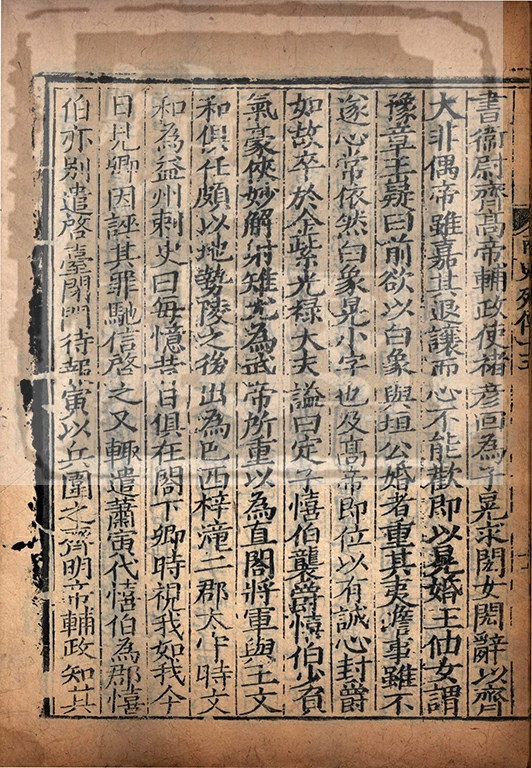 書衞尉齊高帝輔政使褚彦回為子晃求閎女閎辭以齊
大非偶帝雖嘉其退讓而心不能歡即以晃婚王伷女謂
豫章王嶷曰前欲以白象與垣公婚者重其夷澹事雖不
遂心常依然白象晃小字也及高帝即位以有誠心封爵
如故卒於金紫光禄大夫謚曰定子憘伯襲爵憘伯少負
氣豪俠妙解射雉尤為武帝所重以為直閤將軍與王文
和俱任頗以地勢陵之後出為巴西梓潼二郡太守時文
和為益州刺史曰每憶昔日俱在閤下卿時視我如我今
日見卿因誣其罪馳信啓之又輒遣蕭寅代憘伯為郡憘
伯亦别遣啓臺閉門待報寅以兵圍之齊明帝輔政知其